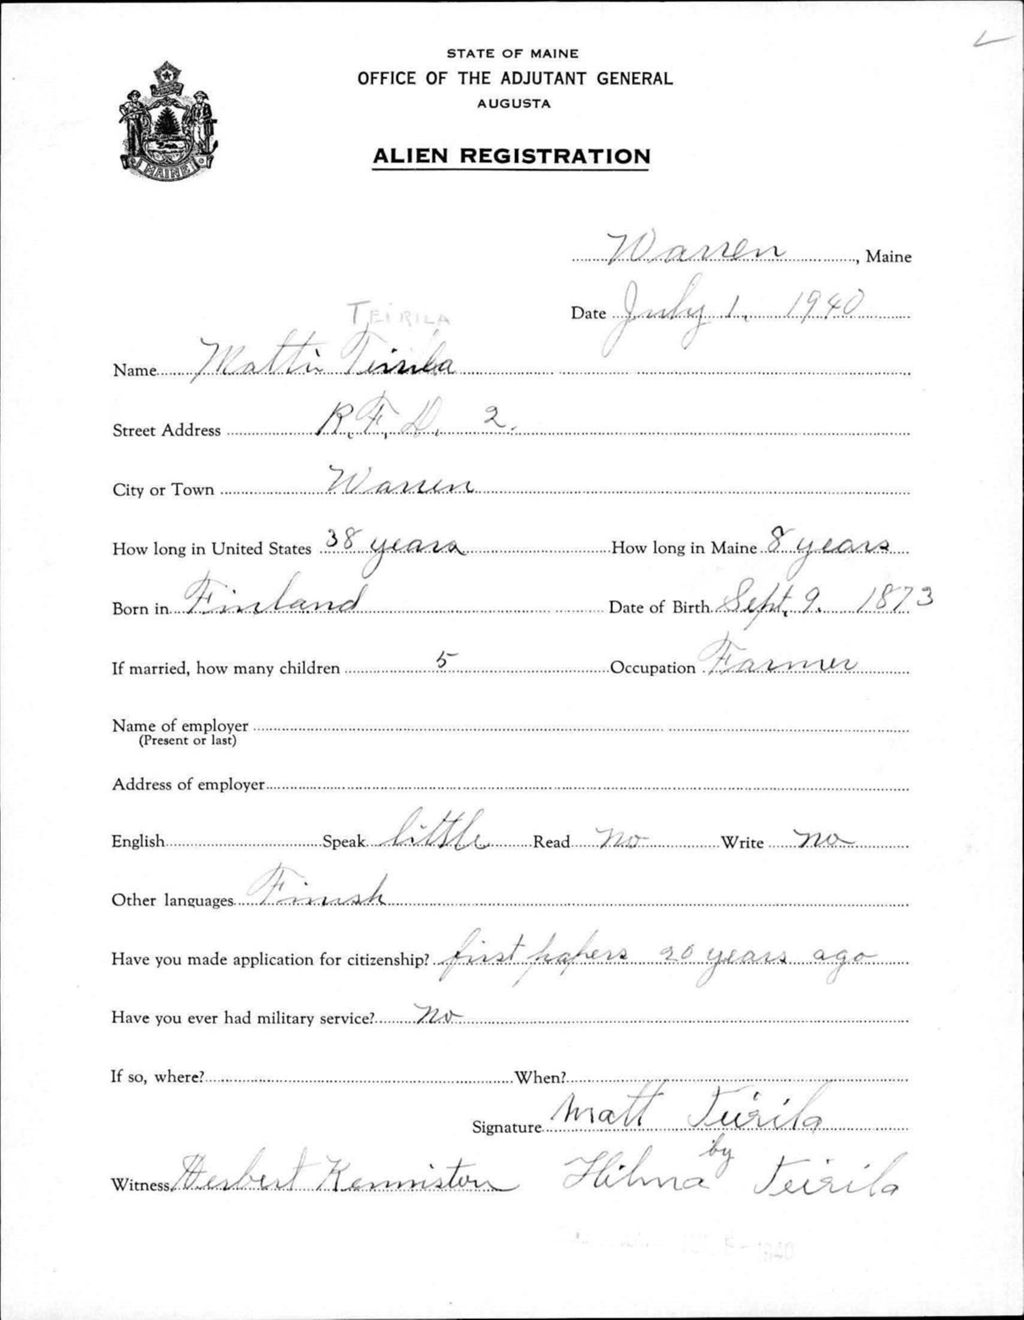 STATE OF MAINE
OFFICE OF THE ADJUTANT GENERAL
AUGUSTA
MAINE
ALIEN REGISTRATION
Warren, Maine
Date July 1, 1940
TEIRILA
Name Matti Teirila
Street Address R.F.D. 2.
City or Town Warren
How long in United States 38 years How long in Maine 8 years
Born in Finland Date of Birth Sept. 9. 1873
If married, how many children 5 Occupation Farmer
Name of employer
(Present or last)
Address of employer
English Speak little Read no Write no
Other languages Finish
Have you made application for citizenship? first papers 20 years ago
Have you ever had military service? no
If so, where? When?
Signature Matt Teirila
by
Witness Herbert Kenniston Hilma Teirila
1940